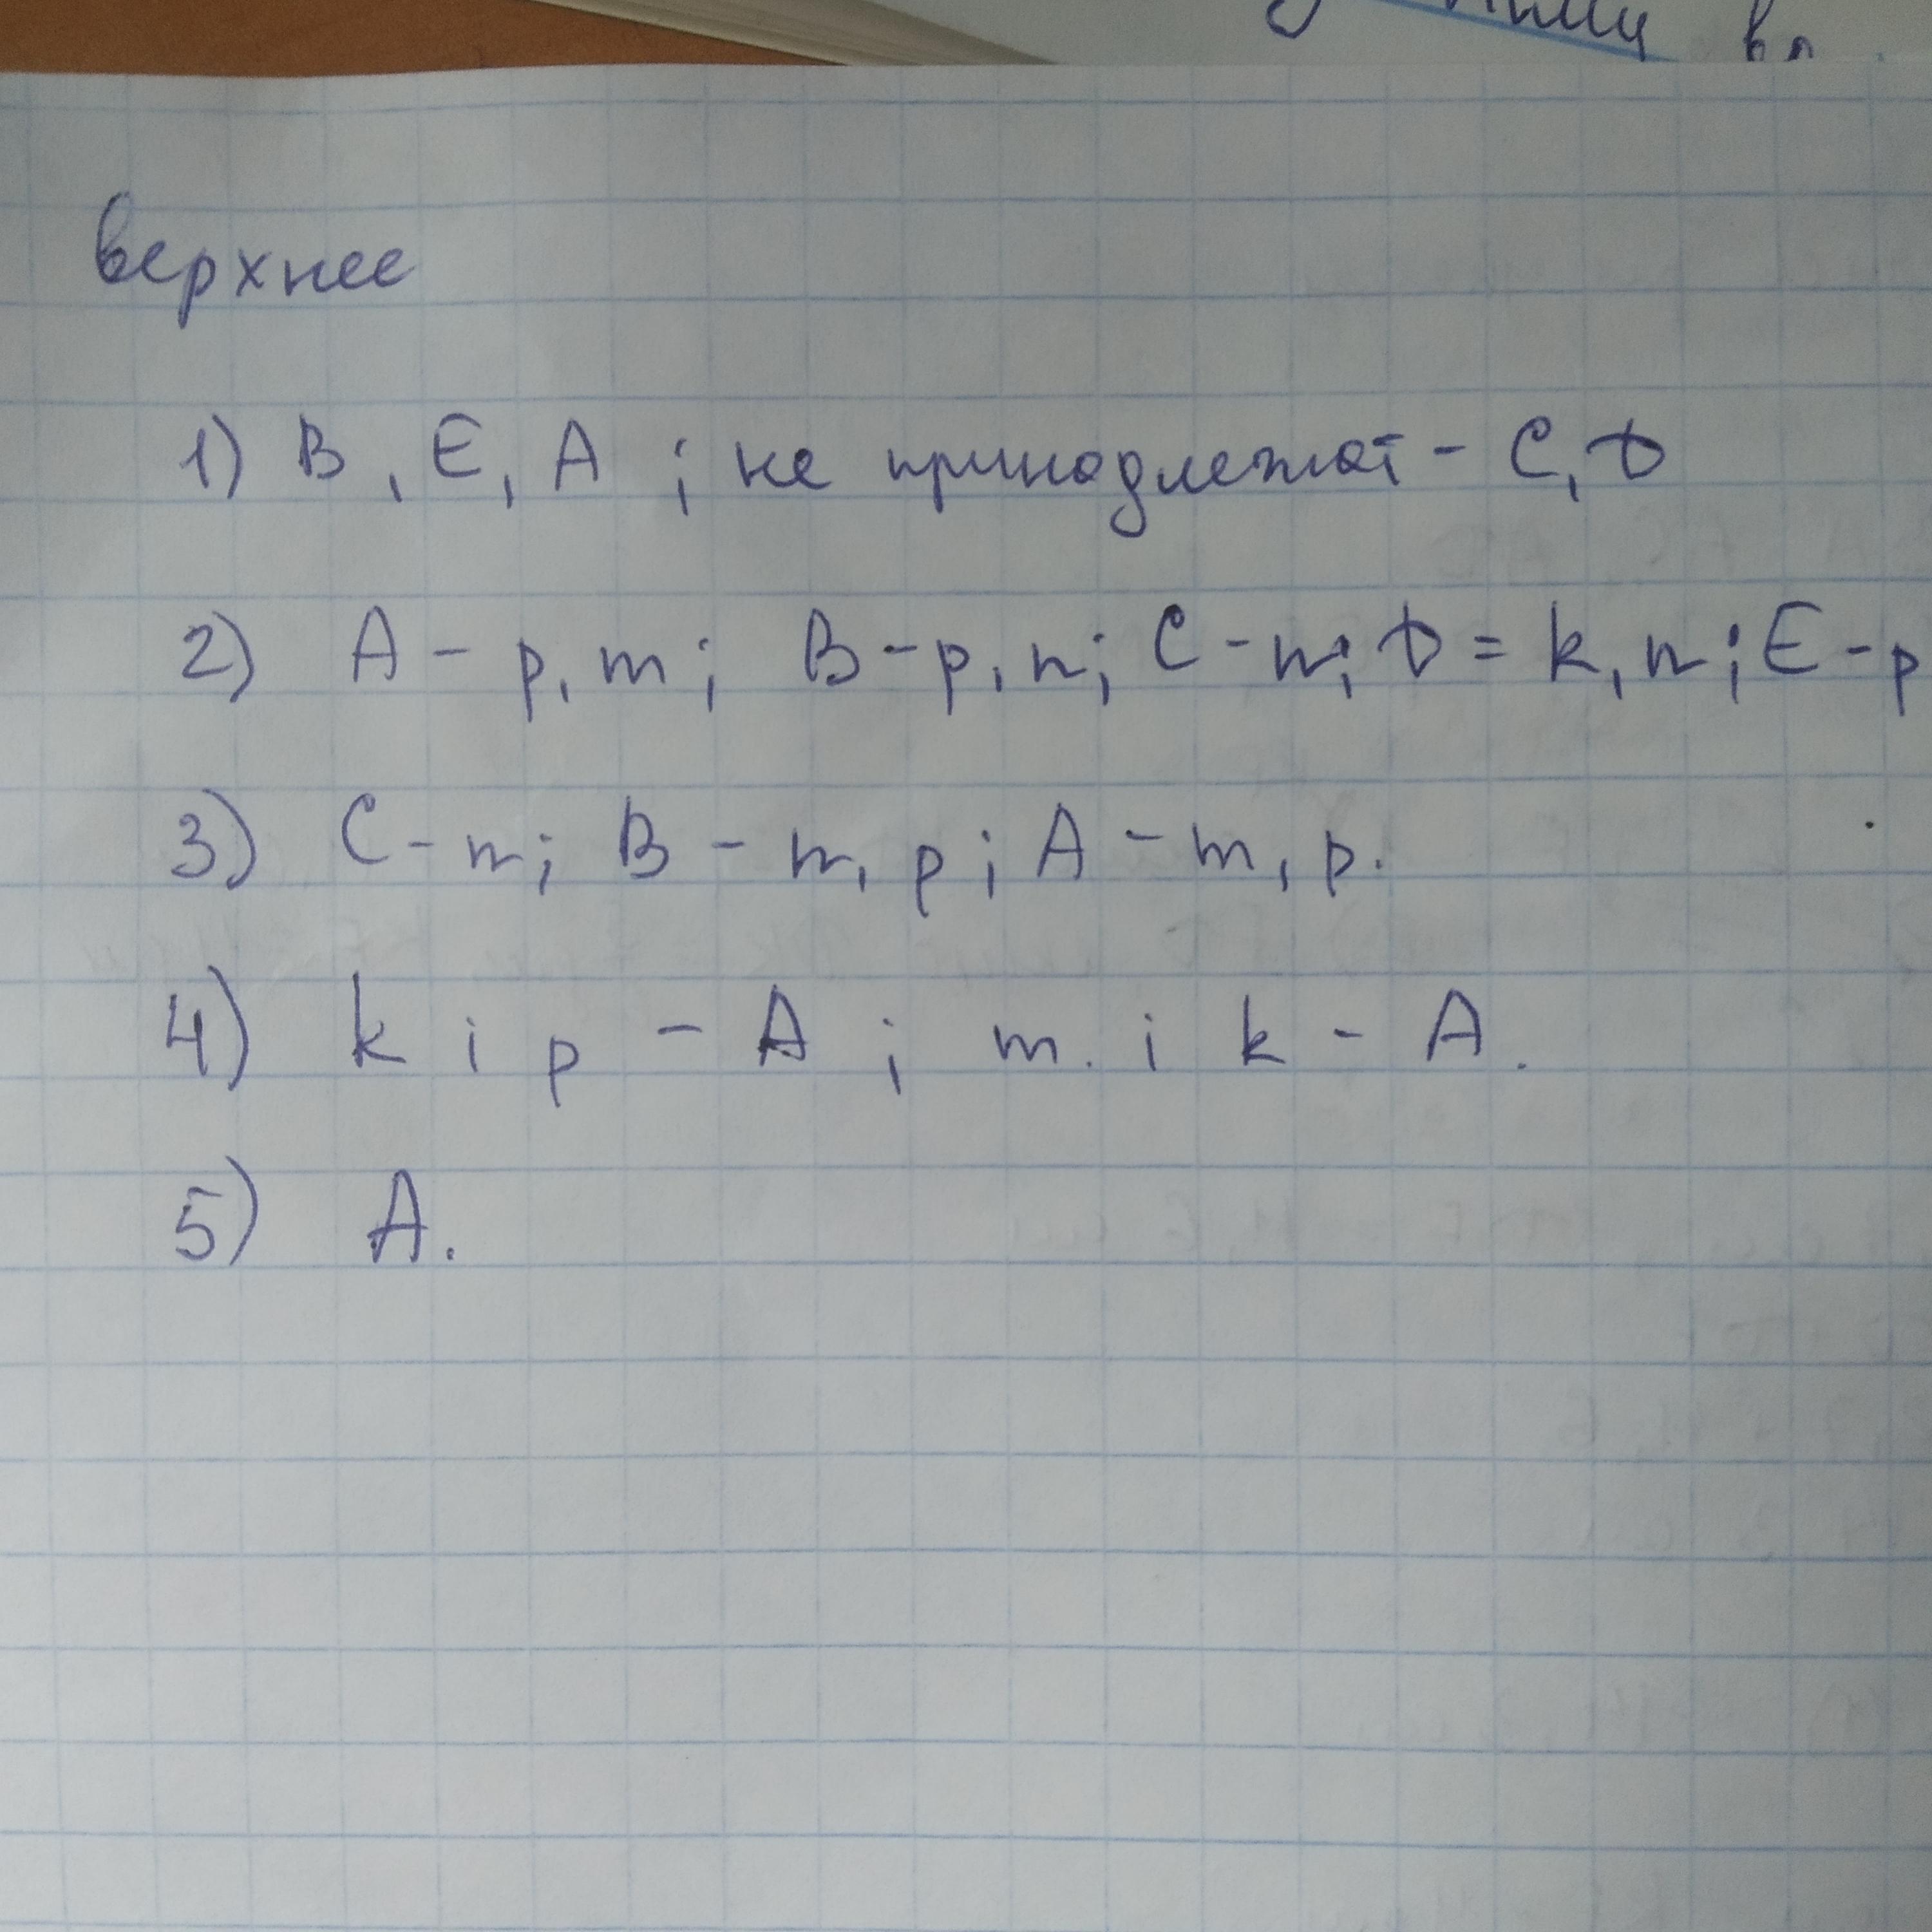 верхнее
1) B, E, A ; не принадлежат - C, D
2) A - p, m ; B - p, n ; C - n ; D = k, n ; E - p
3) C - n ; B - n, p ; A - m, p.
4) k i p - A ; m. i k - A.
5) A.